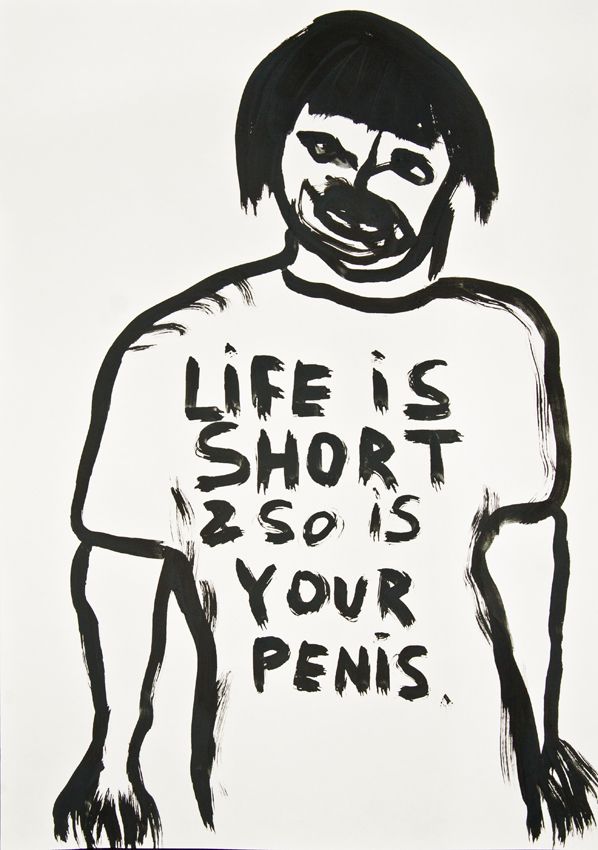 LiFE iS
SHORT
& SO iS
YOUR
PENiS.